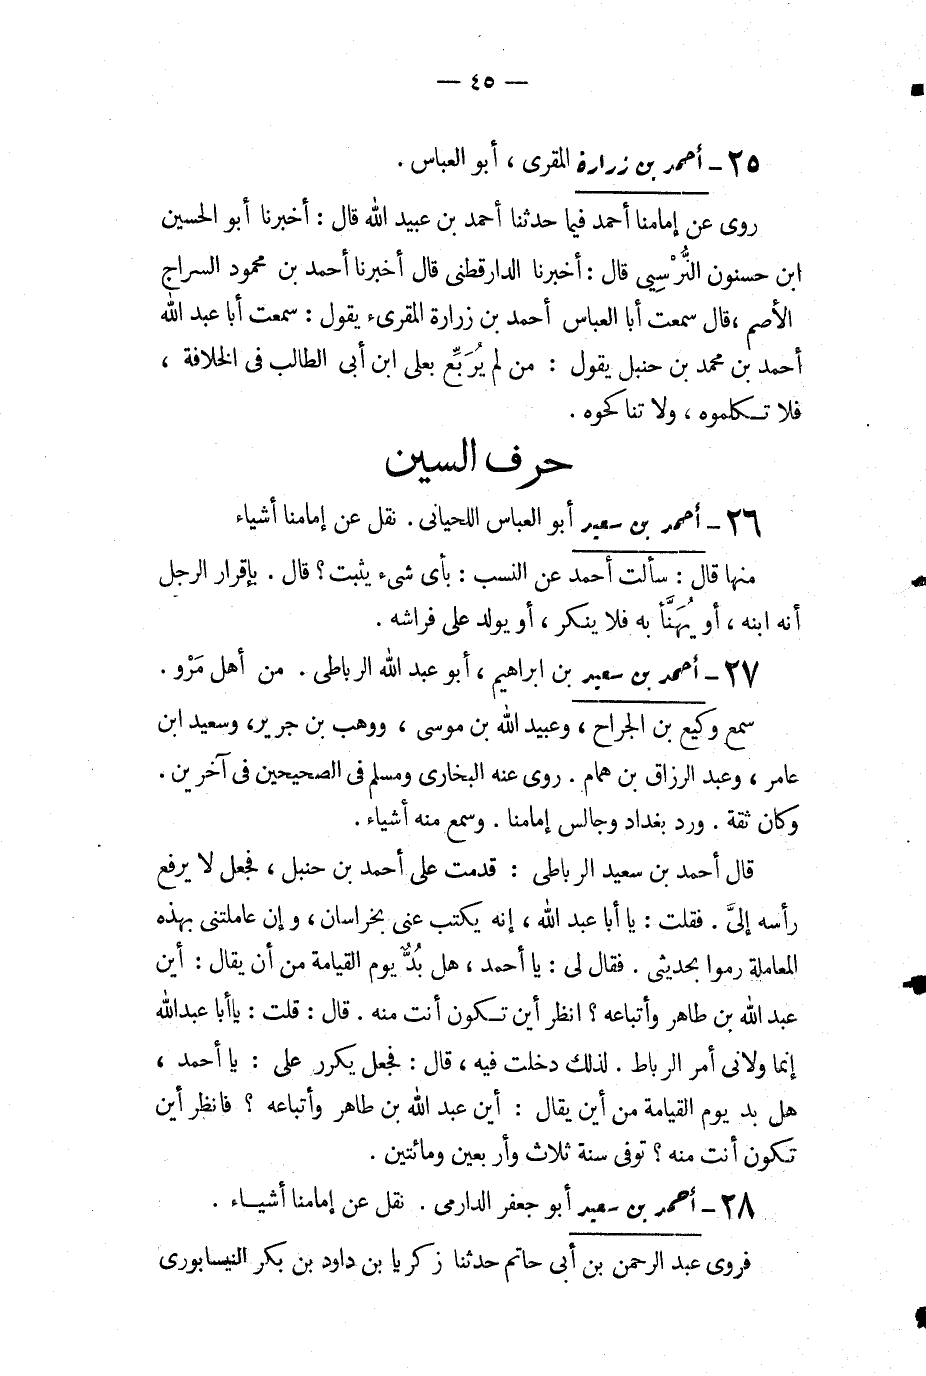 — ٤٥ —
٢٥ – أحمد بن زرارة المقرى ، أبو العباس .
روى عن إمامنا أحمد فيما حدثنا أحمد بن عبيد الله قال : أخبرنا أبو الحسين
ابن حسنون النُّرْسِيى قال : أخبرنا الدارقطنى قال أخبرنا أحمد بن محمود السراج
الأصم ،قال سمعت أبا العباس أحمد بن زرارة المقرىء يقول : سمعت أبا عبد الله
أحمد بن محمد بن حنبل يقول : من لم يُرَبِّع بعلى ابن أبى الطالب فى الخلافة ،
فلا تـكلموه ، ولا تناكحوه .
حرف السين
٢٦ – أحمد بن سعيد أبو العباس اللحيانى . نقل عن إمامنا أشياء
منها قال : سألت أحمد عن النسب : بأى شىء يثبت ؟ قال . بإقرار الرجل
أنه ابنه ، أو يُهَنَّأ به فلا ينكر ، أو يولد على فراشه .
٢٧ – أحمد بن سعيد بن ابراهيم ، أبو عبد الله الرباطى . من أهل مَرْو .
سمع وكيع بن الجراح ، وعبيد الله بن موسى ، ووهب بن جرير، وسعيد ابن
عامر ، وعبد الرزاق بن همام . روى عنه البخارى ومسلم فى الصحيحين فى آخرين .
وكان ثقة . ورد بغداد وجالس إمامنا . وسمع منه أشياء .
قال أحمد بن سعيد الرباطى : قدمت على أحمد بن حنبل ، فجعل لا يرفع
رأسه إلىَّ . فقلت : يا أبا عبد الله ، إنه يكتب عنى بخراسان ، و إن عاملتنى بهذه
المعاملة رموا بحديثى . فقال لى : يا أحمد ، هل بُدٌّ يوم القيامة من أن يقال : أين
عبد الله بن طاهر وأتباعه ؟ انظر أين تـكون أنت منه . قال : قلت : ياأبا عبدالله
إنما ولانى أمر الرباط . لذلك دخلت فيه ، قال : فجعل يكرر على : يا أحمد ،
هل بد يوم القيامة من أين يقال : أين عبد الله بن طاهر وأتباعه ؟ فانظر أين
تـكون أنت منه ؟ توفى سنة ثلاث وأربعين ومائتين .
٢٨ – أحمد بن سعيد أبو جعفر الدارمى . نقل عن إمامنا أشيـاء .
فروى عبد الرحمن بن أبى حاتم حدثنا زكريا بن داود بن بكر النيسابورى